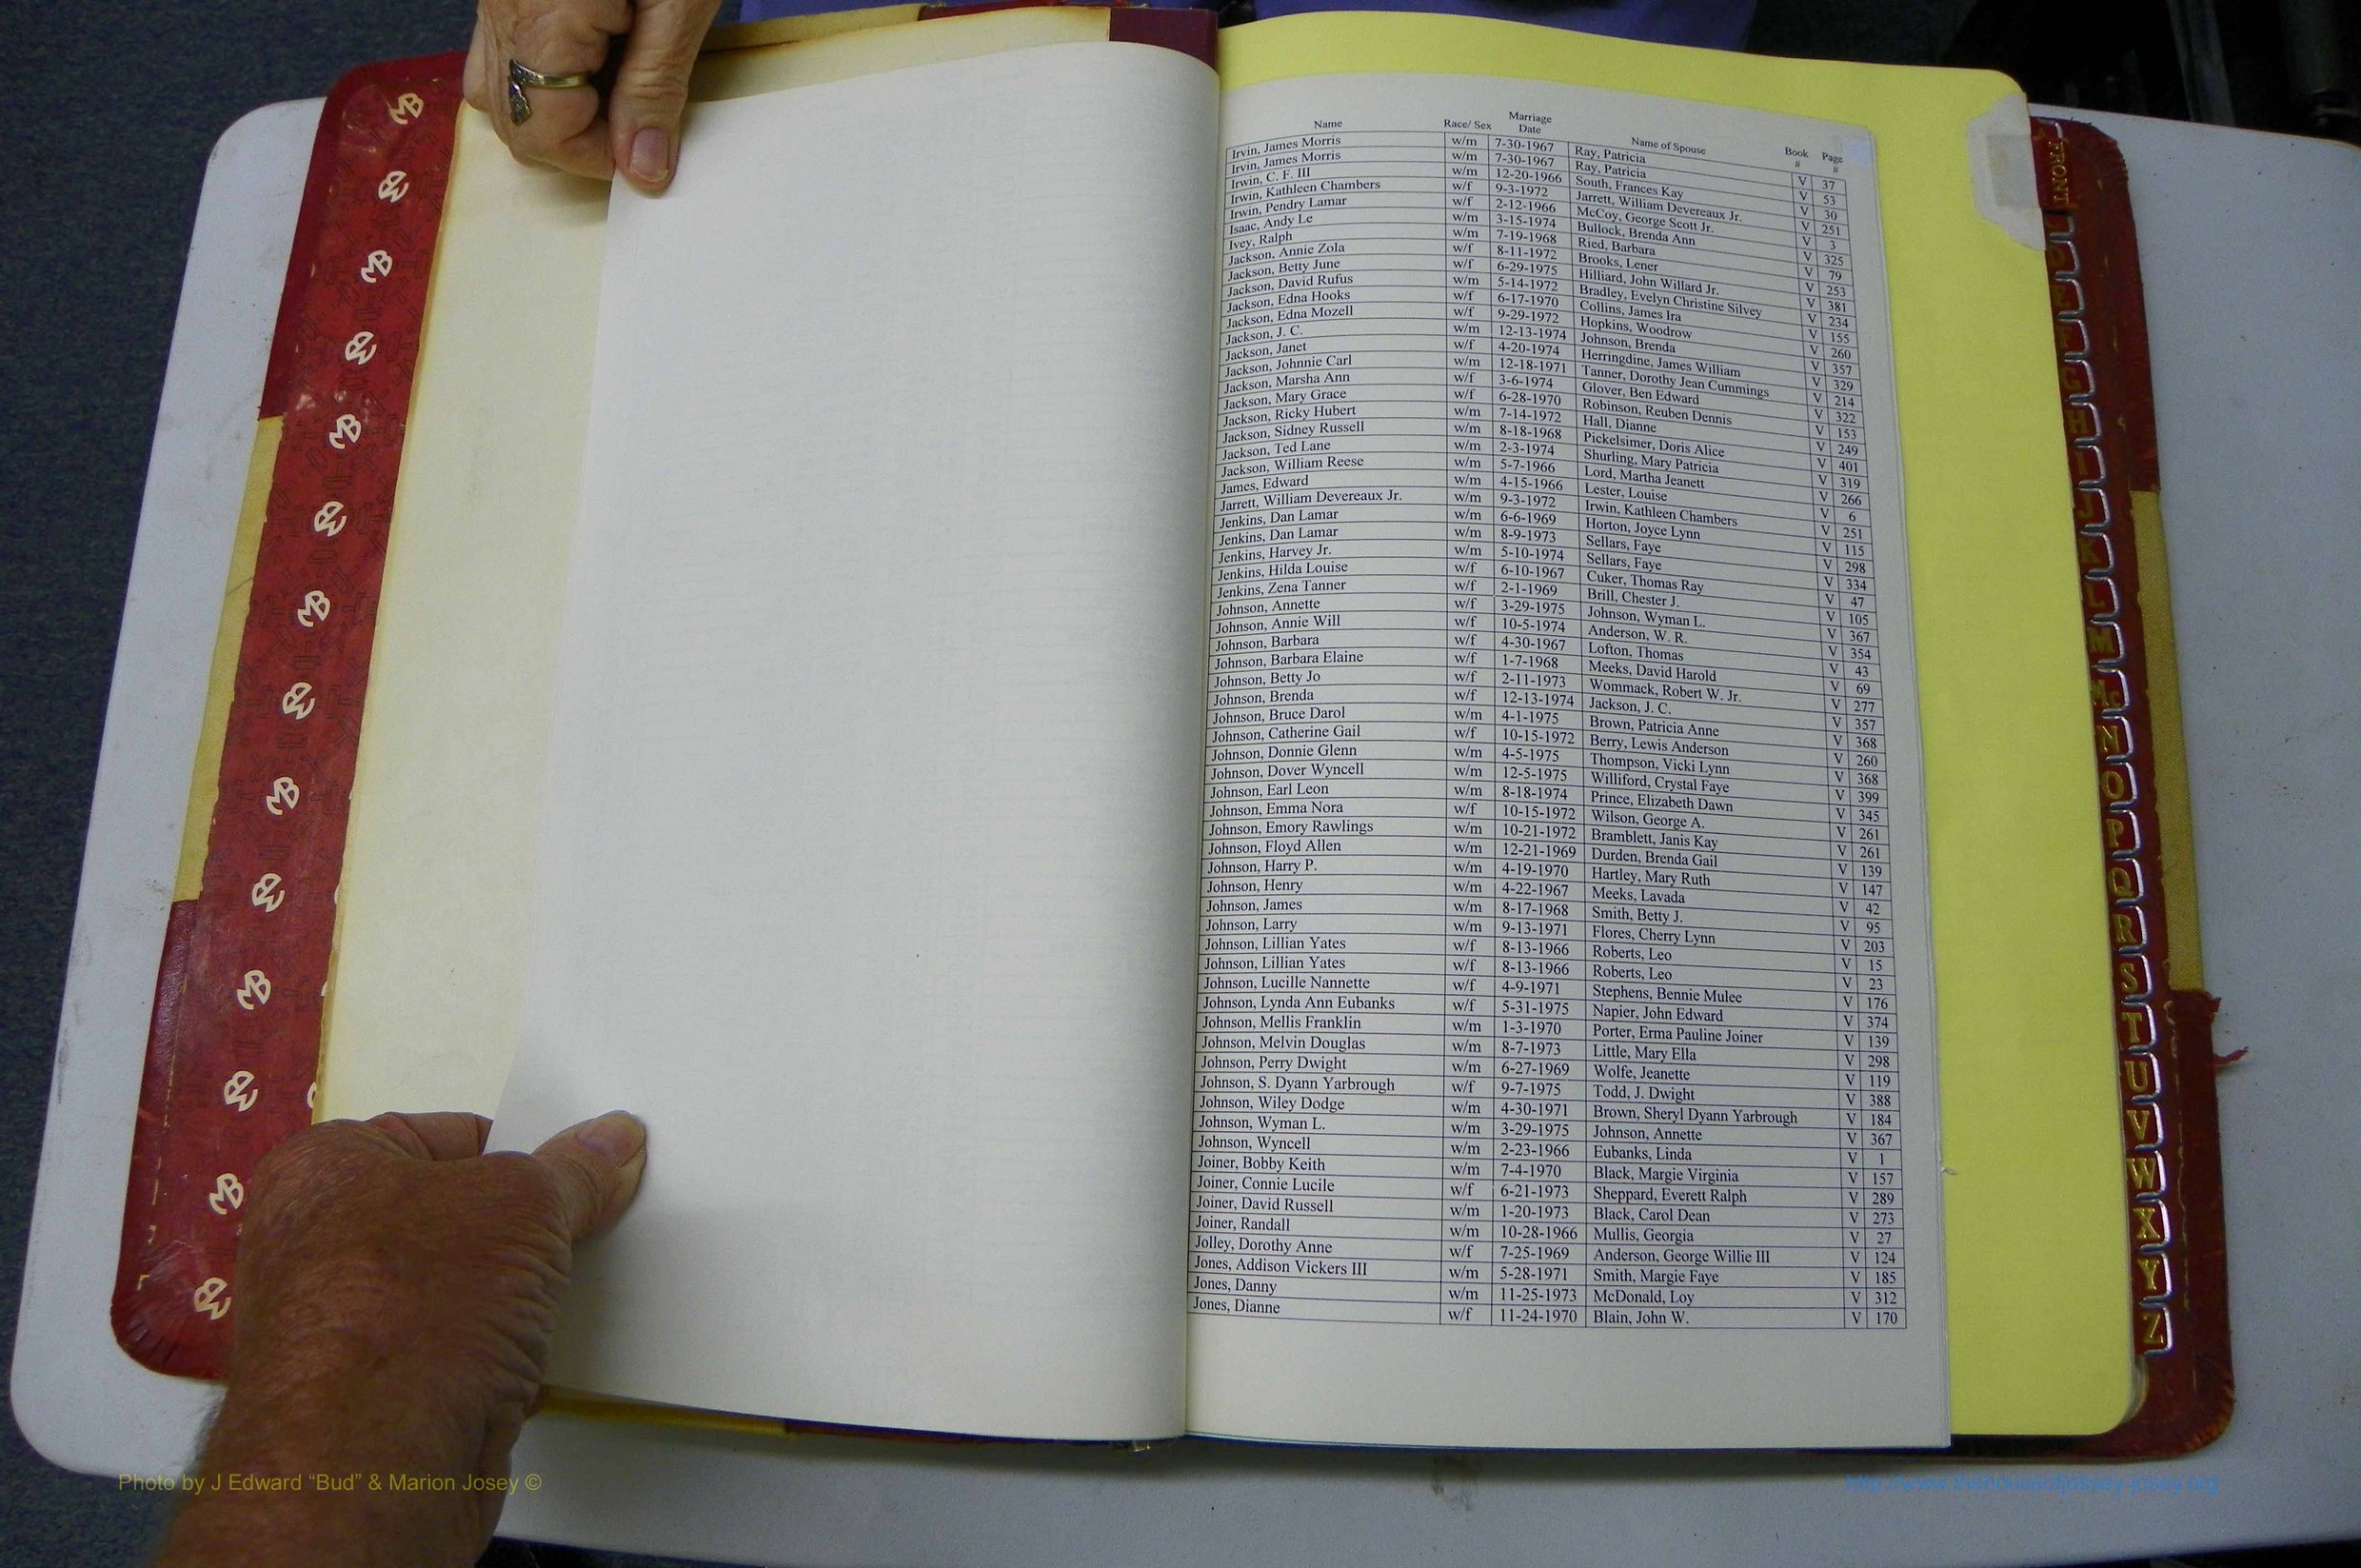 Name Race/ Sex Marriage Date Name of Spouse Book # Page #
Irvin, James Morris w/m 7-30-1967 Ray, Patricia V 37
Irvin, James Morris w/m 7-30-1967 Ray, Patricia V 53
Irwin, C. F. III w/m 12-20-1966 South, Frances Kay V 30
Irwin, Kathleen Chambers w/f 9-3-1972 Jarrett, William Devereaux Jr. V 251
Irwin, Pendry Lamar w/f 2-12-1966 McCoy, George Scott Jr. V 3
Isaac, Andy Le w/m 3-15-1974 Bullock, Brenda Ann V 325
Ivey, Ralph w/m 7-19-1968 Ried, Barbara V 79
Jackson, Annie Zola w/f 8-11-1972 Brooks, Lener V 253
Jackson, Betty June w/f 6-29-1975 Hilliard, John Willard Jr. V 381
Jackson, David Rufus w/m 5-14-1972 Bradley, Evelyn Christine Silvey V 234
Jackson, Edna Hooks w/f 6-17-1970 Collins, James Ira V 155
Jackson, Edna Mozell w/f 9-29-1972 Hopkins, Woodrow V 260
Jackson, J. C. w/m 12-13-1974 Johnson, Brenda V 357
Jackson, Janet w/f 4-20-1974 Herringdine, James William V 329
Jackson, Johnnie Carl w/m 12-18-1971 Tanner, Dorothy Jean Cummings V 214
Jackson, Marsha Ann w/f 3-6-1974 Glover, Ben Edward V 322
Jackson, Mary Grace w/f 6-28-1970 Robinson, Reuben Dennis V 153
Jackson, Ricky Hubert w/m 7-14-1972 Hall, Dianne V 249
Jackson, Sidney Russell w/m 8-18-1968 Pickelsimer, Doris Alice V 401
Jackson, Ted Lane w/m 2-3-1974 Shurling, Mary Patricia V 319
Jackson, William Reese w/m 5-7-1966 Lord, Martha Jeanett V 266
James, Edward w/m 4-15-1966 Lester, Louise V 6
Jarrett, William Devereaux Jr. w/m 9-3-1972 Irwin, Kathleen Chambers V 251
Jenkins, Dan Lamar w/m 6-6-1969 Horton, Joyce Lynn V 115
Jenkins, Dan Lamar w/m 8-9-1973 Sellars, Faye V 298
Jenkins, Harvey Jr. w/m 5-10-1974 Sellars, Faye V 334
Jenkins, Hilda Louise w/f 6-10-1967 Cuker, Thomas Ray V 47
Jenkins, Zena Tanner w/f 2-1-1969 Brill, Chester J. V 105
Johnson, Annette w/f 3-29-1975 Johnson, Wyman L. V 367
Johnson, Annie Will w/f 10-5-1974 Anderson, W. R. V 354
Johnson, Barbara w/f 4-30-1967 Lofton, Thomas V 43
Johnson, Barbara Elaine w/f 1-7-1968 Meeks, David Harold V 69
Johnson, Betty Jo w/f 2-11-1973 Wommack, Robert W. Jr. V 277
Johnson, Brenda w/f 12-13-1974 Jackson, J. C. V 357
Johnson, Bruce Darol w/m 4-1-1975 Brown, Patricia Anne V 368
Johnson, Catherine Gail w/f 10-15-1972 Berry, Lewis Anderson V 260
Johnson, Donnie Glenn w/m 4-5-1975 Thompson, Vicki Lynn V 368
Johnson, Dover Wyncell w/m 12-5-1975 Williford, Crystal Faye V 399
Johnson, Earl Leon w/m 8-18-1974 Prince, Elizabeth Dawn V 345
Johnson, Emma Nora w/f 10-15-1972 Wilson, George A. V 261
Johnson, Emory Rawlings w/m 10-21-1972 Bramblett, Janis Kay V 261
Johnson, Floyd Allen w/m 12-21-1969 Durden, Brenda Gail V 139
Johnson, Harry P. w/m 4-19-1970 Hartley, Mary Ruth V 147
Johnson, Henry w/m 4-22-1967 Meeks, Lavada V 42
Johnson, James w/m 8-17-1968 Smith, Betty J. V 95
Johnson, Larry w/m 9-13-1971 Flores, Cherry Lynn V 203
Johnson, Lillian Yates w/f 8-13-1966 Roberts, Leo V 15
Johnson, Lillian Yates w/f 8-13-1966 Roberts, Leo V 23
Johnson, Lucille Nannette w/f 4-9-1971 Stephens, Bennie Mulee V 176
Johnson, Lynda Ann Eubanks w/f 5-31-1975 Napier, John Edward V 374
Johnson, Mellis Franklin w/m 1-3-1970 Porter, Erma Pauline Joiner V 139
Johnson, Melvin Douglas w/m 8-7-1973 Little, Mary Ella V 298
Johnson, Perry Dwight w/m 6-27-1969 Wolfe, Jeanette V 119
Johnson, S. Dyann Yarbrough w/f 9-7-1975 Todd, J. Dwight V 388
Johnson, Wiley Dodge w/m 4-30-1971 Brown, Sheryl Dyann Yarbrough V 184
Johnson, Wyman L. w/m 3-29-1975 Johnson, Annette V 367
Johnson, Wyncell w/m 2-23-1966 Eubanks, Linda V 1
Joiner, Bobby Keith w/m 7-4-1970 Black, Margie Virginia V 157
Joiner, Connie Lucile w/f 6-21-1973 Sheppard, Everett Ralph V 289
Joiner, David Russell w/m 1-20-1973 Black, Carol Dean V 273
Joiner, Randall w/m 10-28-1966 Mullis, Georgia V 27
Jolley, Dorothy Anne w/f 7-25-1969 Anderson, George Willie III V 124
Jones, Addison Vickers III w/m 5-28-1971 Smith, Margie Faye V 185
Jones, Danny w/m 11-25-1973 McDonald, Loy V 312
Jones, Dianne w/f 11-24-1970 Blain, John W. V 170
FRONT
G
H
I
J
K
L
M
Mc
N
O
P
Q
R
S
T
U
V
W
X
Y
Z
Photo by J Edward “Bud” & Marion Josey ©
http://www.thehouseofjossey-josey.org